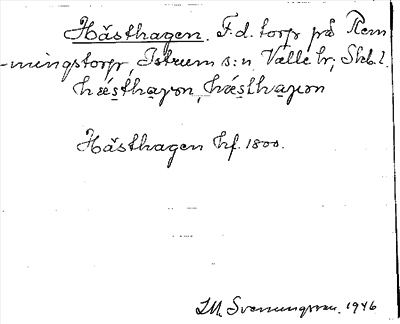 Hästhagen. F.d. torp på Rem
-mingstorp, Istrum s:n Valle hr, Skb. l.
hǽsthaɣən, hǽsthaɣən
Hästhagen hf. 1800.
S.M. Svenungsson. 1946